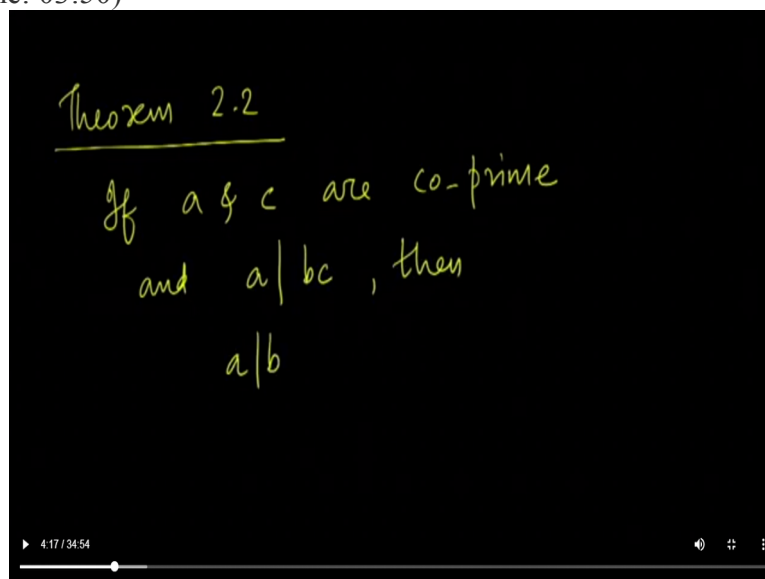 Theorem 2.2
If a & c are co-prime
and a|bc, then
a|b
4:17 / 34:54